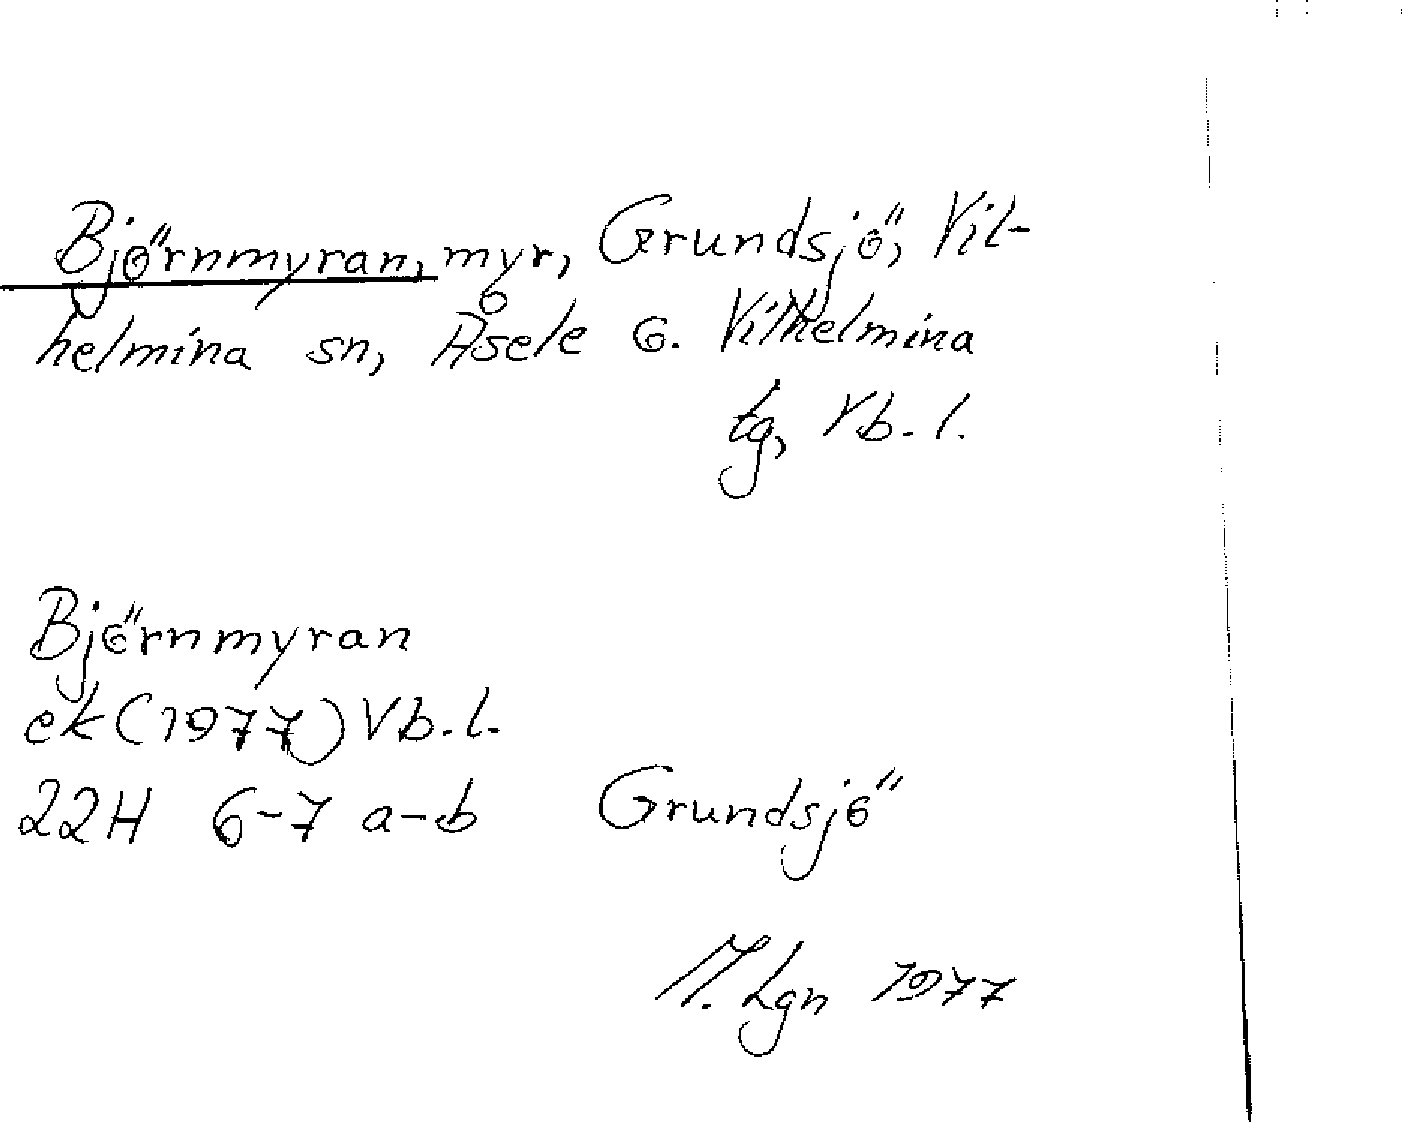 Björnmyran, myr, Grundsjö, Vil-
helmina sn, Åsele o. Vilhelmina
tg, Vb. l.
Björnmyran
ek (1977) Vb. l.
22H 6-7 a-b Grundsjö
M. Lgn 1977